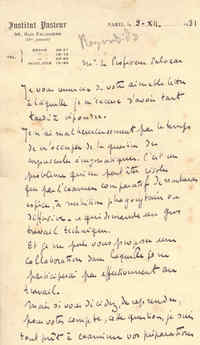 Institut Pasteur
PARIS, le 2-XII. 1931
Respondido
TEL.
Mr. le Professeur
Je vous remercie de votre aimable lettre
à laquelle je m'excuse d'avoir tant
tardé à répondre.
Je n'ai malheureusement pas le temps
de m'occuper de la question des
C'est un
problème qui ne peut être résolu
que par l'examen comparatif de nombreuses
ou
diffusion - ce qui demande un gros
travail technique.
Et je ne puis vous proposer une
collaboration dans laquelle je ne
participerai pas effectivement au
travail.
Mais si vous décidez, de reprendre,
pour votre compte, cette question, je suis
tout prêt à examiner vos préparations